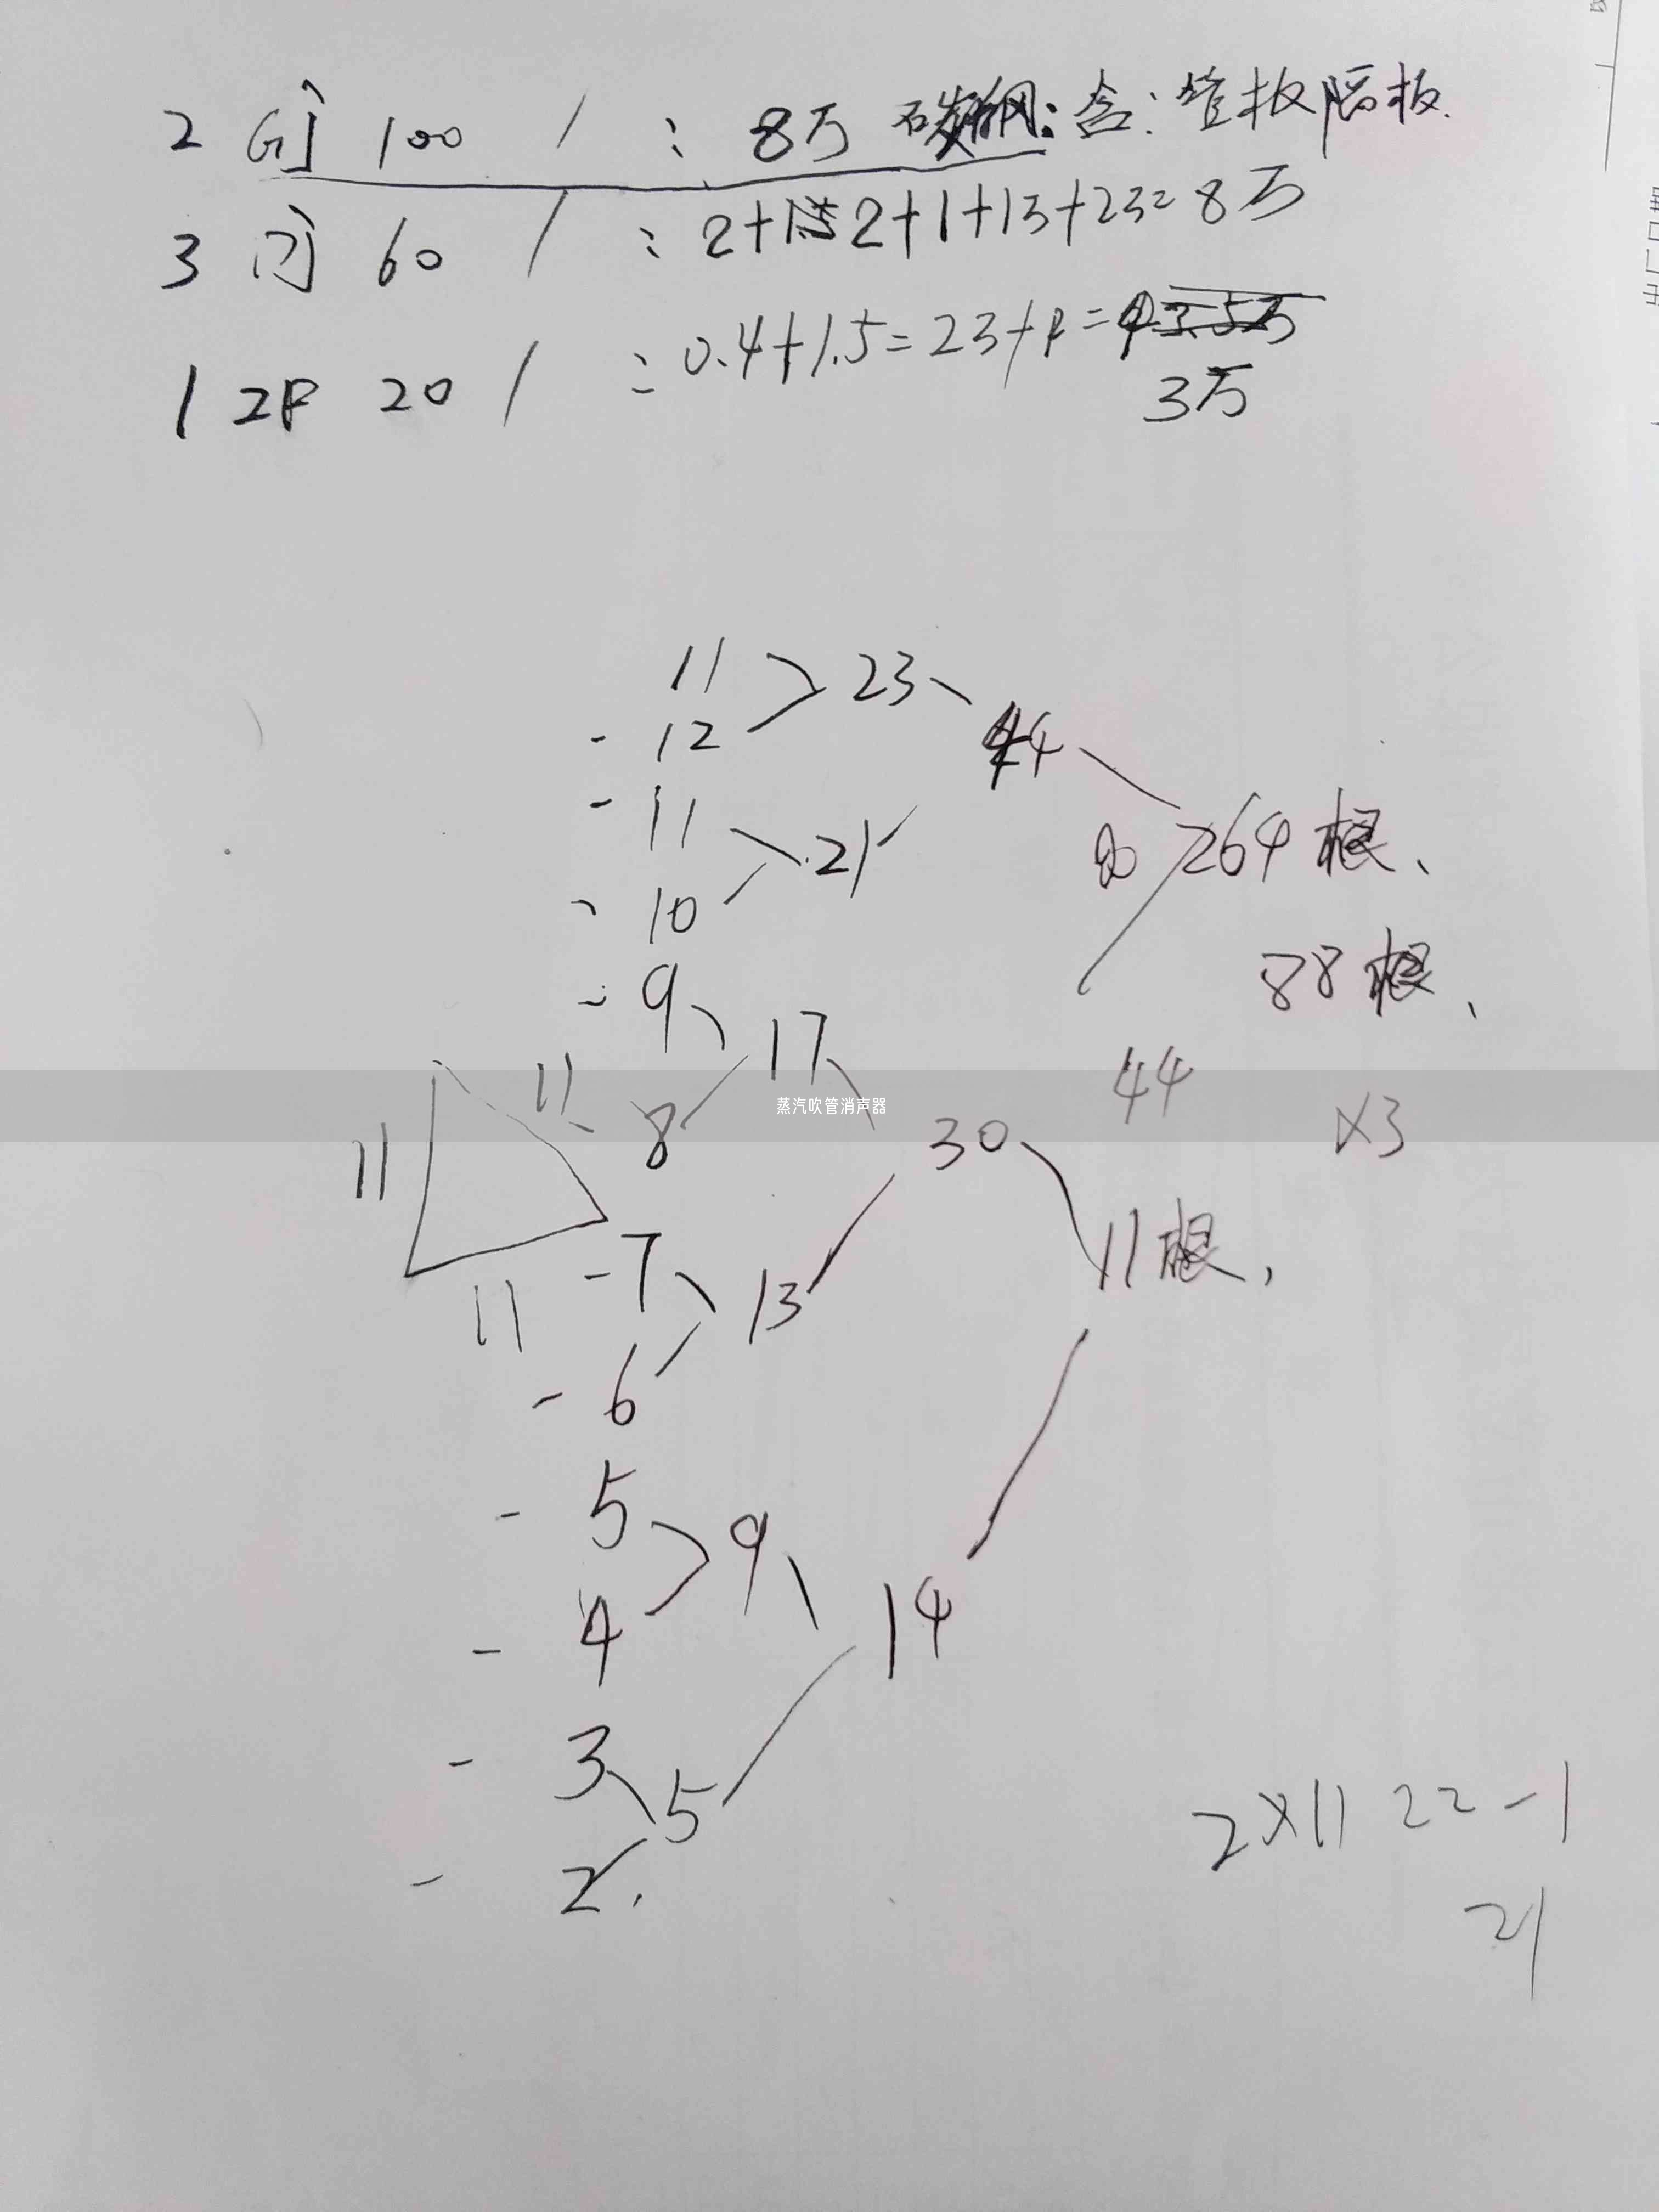 2 100 / : 8万 碳钢: 含: 管板隔板.
3 60 / : 2+1 2+1+13+23= 8万
1 2P 20 / : 0.4+1.5=23+ =
3万
11 23
44
- 12
- 11 21
264根、
- 10
88根、
- 9 17
44
11
- 8 30 ×3
蒸汽吹管消声器
11
11根,
- 7 13
11
- 6
- 5 9
- 4 14
- 3 5
2×11 22-1
- 2.
21